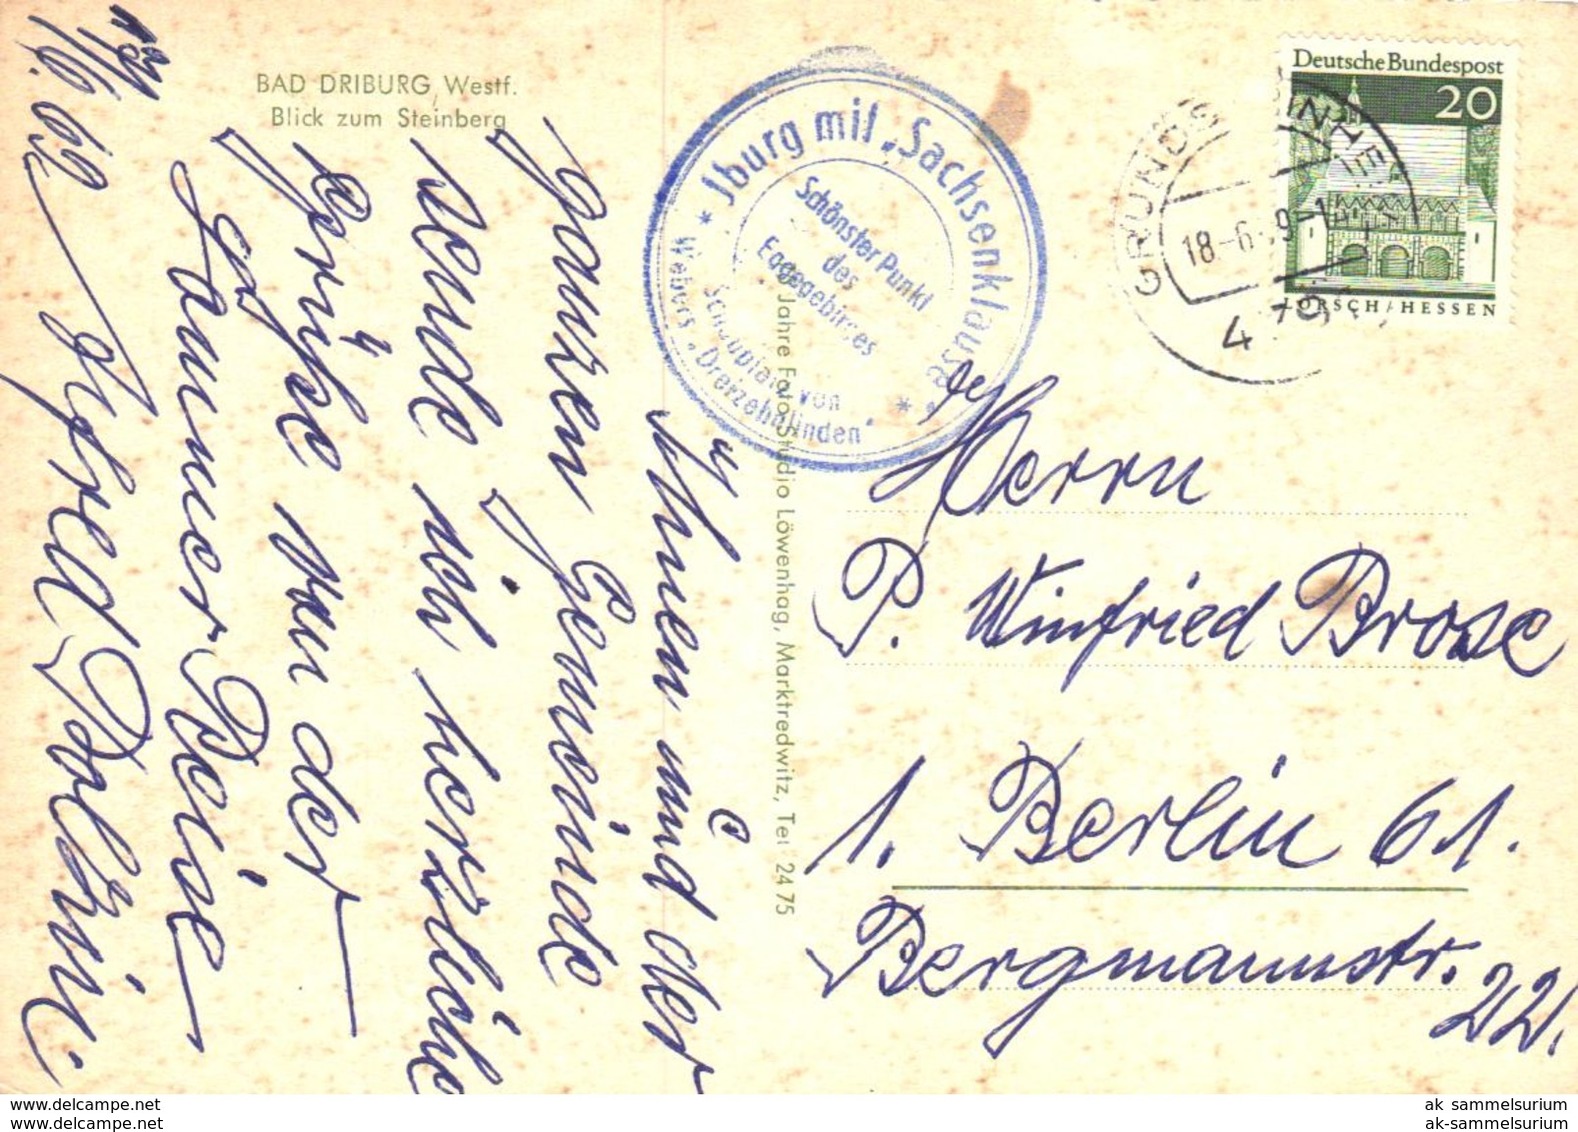 BAD DRIBURG, Westf.
Blick zum Steinberg
16.6.69
Ihnen und der
ganzen Gemeinde
sende ich herzliche
Grüße von der
Sommer Reise
* Jburg mit „Sachsenklause“ *
Schönster Punkt
des
Eggegebirges
Schauplatz von
Webers „Dreizehnlinden“
Foto-Studio Löwenhag, Marktredwitz, Tel 24 75
Deutsche Bundespost
20
LORSCH/HESSEN
18.-6.
Herrn
P. Winfried Brose
1. Berlin 61.
Bergmannstr.
22.
www.delcampe.net
ak_sammelsurium
www.delcampe.net
ak-sammelsurium